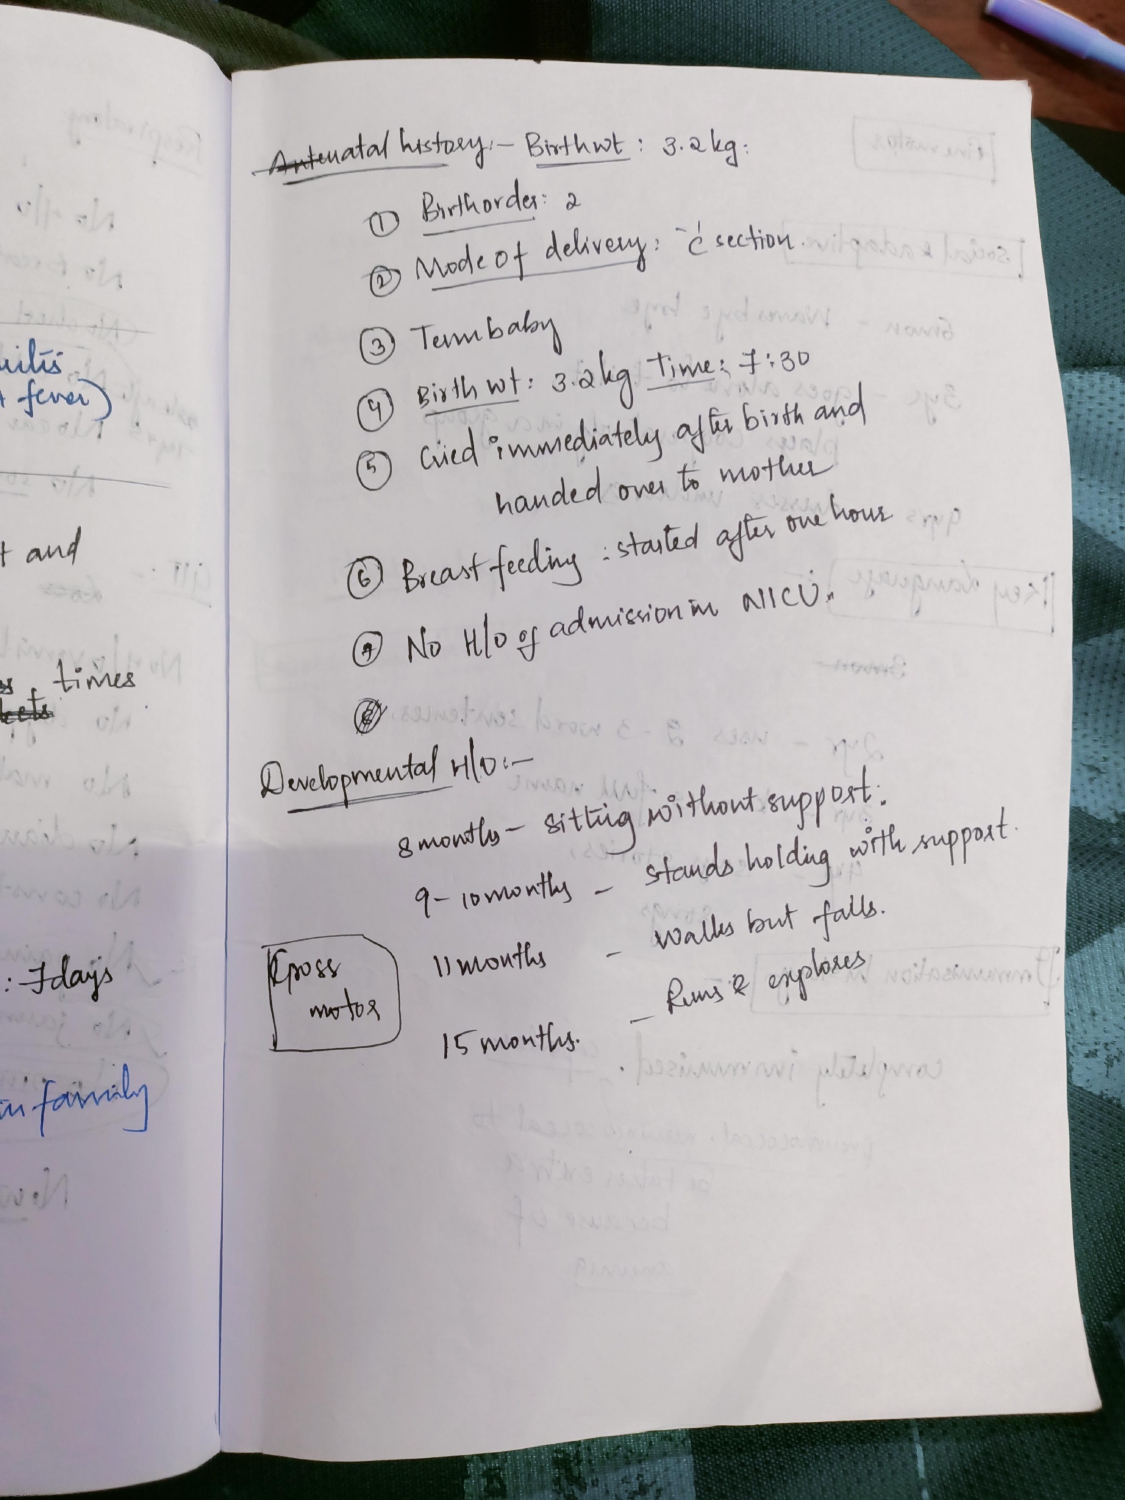 Antenatal history:- Birth wt : 3.2kg:
① Birth order: 2
② Mode of delivery: c̄ section.
③ Term baby
④ Birth wt: 3.2kg Time: 7:30
⑤ Cried immediately after birth and
handed over to mother
⑥ Breast feeding : started after one hour
⑦ No H/O of admission in NICU.
Developmental H/O:-
8 months - sitting without support.
9-10 months - stands holding with support.
Gross
motor
11 months - walks but falls.
15 months. - Runs & explores
fever)
and
times
: 7days
family